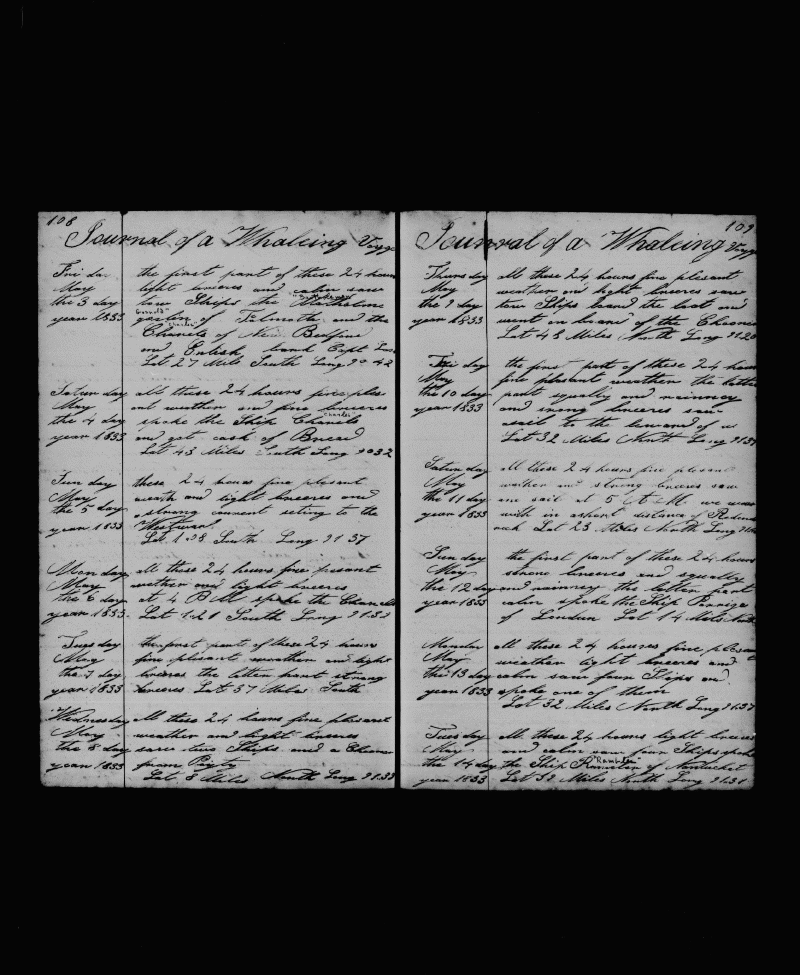 108
Journal of a Whaleing Voyge
Friday the first part of these 24 hours
May light breeres and calm saw
the 3 day two Ships the
year 1833 of Falmoth and the
Charels of New Bedford
and Capt
Lat 27 Mile South Long 90 42
Saturn day all these 24 hours fine ples
May ant weather and fine breeres
the 4 day spoke the Ship Charels
year 1833 and got cask of Bread
Lat 43 Miles South Long 90 32
Sun day these 24 hours fine plesent
May weath and light breeres and
the 5 day strong current seting to the
year 1833 Westward
Lat 1-08 South Long 91 37
Mon day all these 24 hours fine pesant
May wether and light breeres
the 6 day at 4 P M spoke the Charels
year 1833 Lat 1-21 South Long 91 52
Tuesday the first part of these 24 hours
May fine plesant weather and light
the 7 day breeres the latter part strong
year 1833 breeres Lat 57 Miles South
Wednesday all these 24 hours fine plesant
May weather and light breeres
the 8 day saw two Ships and a
year 1833 from
Lat 8 Miles North Long 91 33
109
Journal of a Whaleing Voyge
Thursday all these 24 hours fine plesent
May weather and light breeres saw
the 9 day two Ships
year 1833 went on board of the
Lat 48 Miles North Long
Friday the first part of these 24 hours
May fine plesant weather the latter
the 10 day part squally and rainney
year 1833 and strong breeres saw
sail to the leward of us
Lat 32 Miles North Long 91 37
Saturn day all these 24 hours fine plesent
May wether and strong breeres saw
the 11 day one sail at 5 A M we were
year 1833 with in a short distance of
rock Lat 23 Miles North Long
Sun day the first part of these 24 hours
May strong breeres and squally
the 12 day and rainney the latter part
year 1833 calm spoke the Ship
of London Lat 14 Miles North
Monday all these 24 hours fine plesent
May weather light breeres and
the 13 day calm saw four Ships and
year 1833 spoke one of them
Lat 32 Miles North Long 91 37
Tuesday all these 24 hours light breeres
May and calm saw four Ships spoke
the 14 day the Ship "Rambler" of Nantucket
year 1833 Lat 32 Miles North Long 91 31